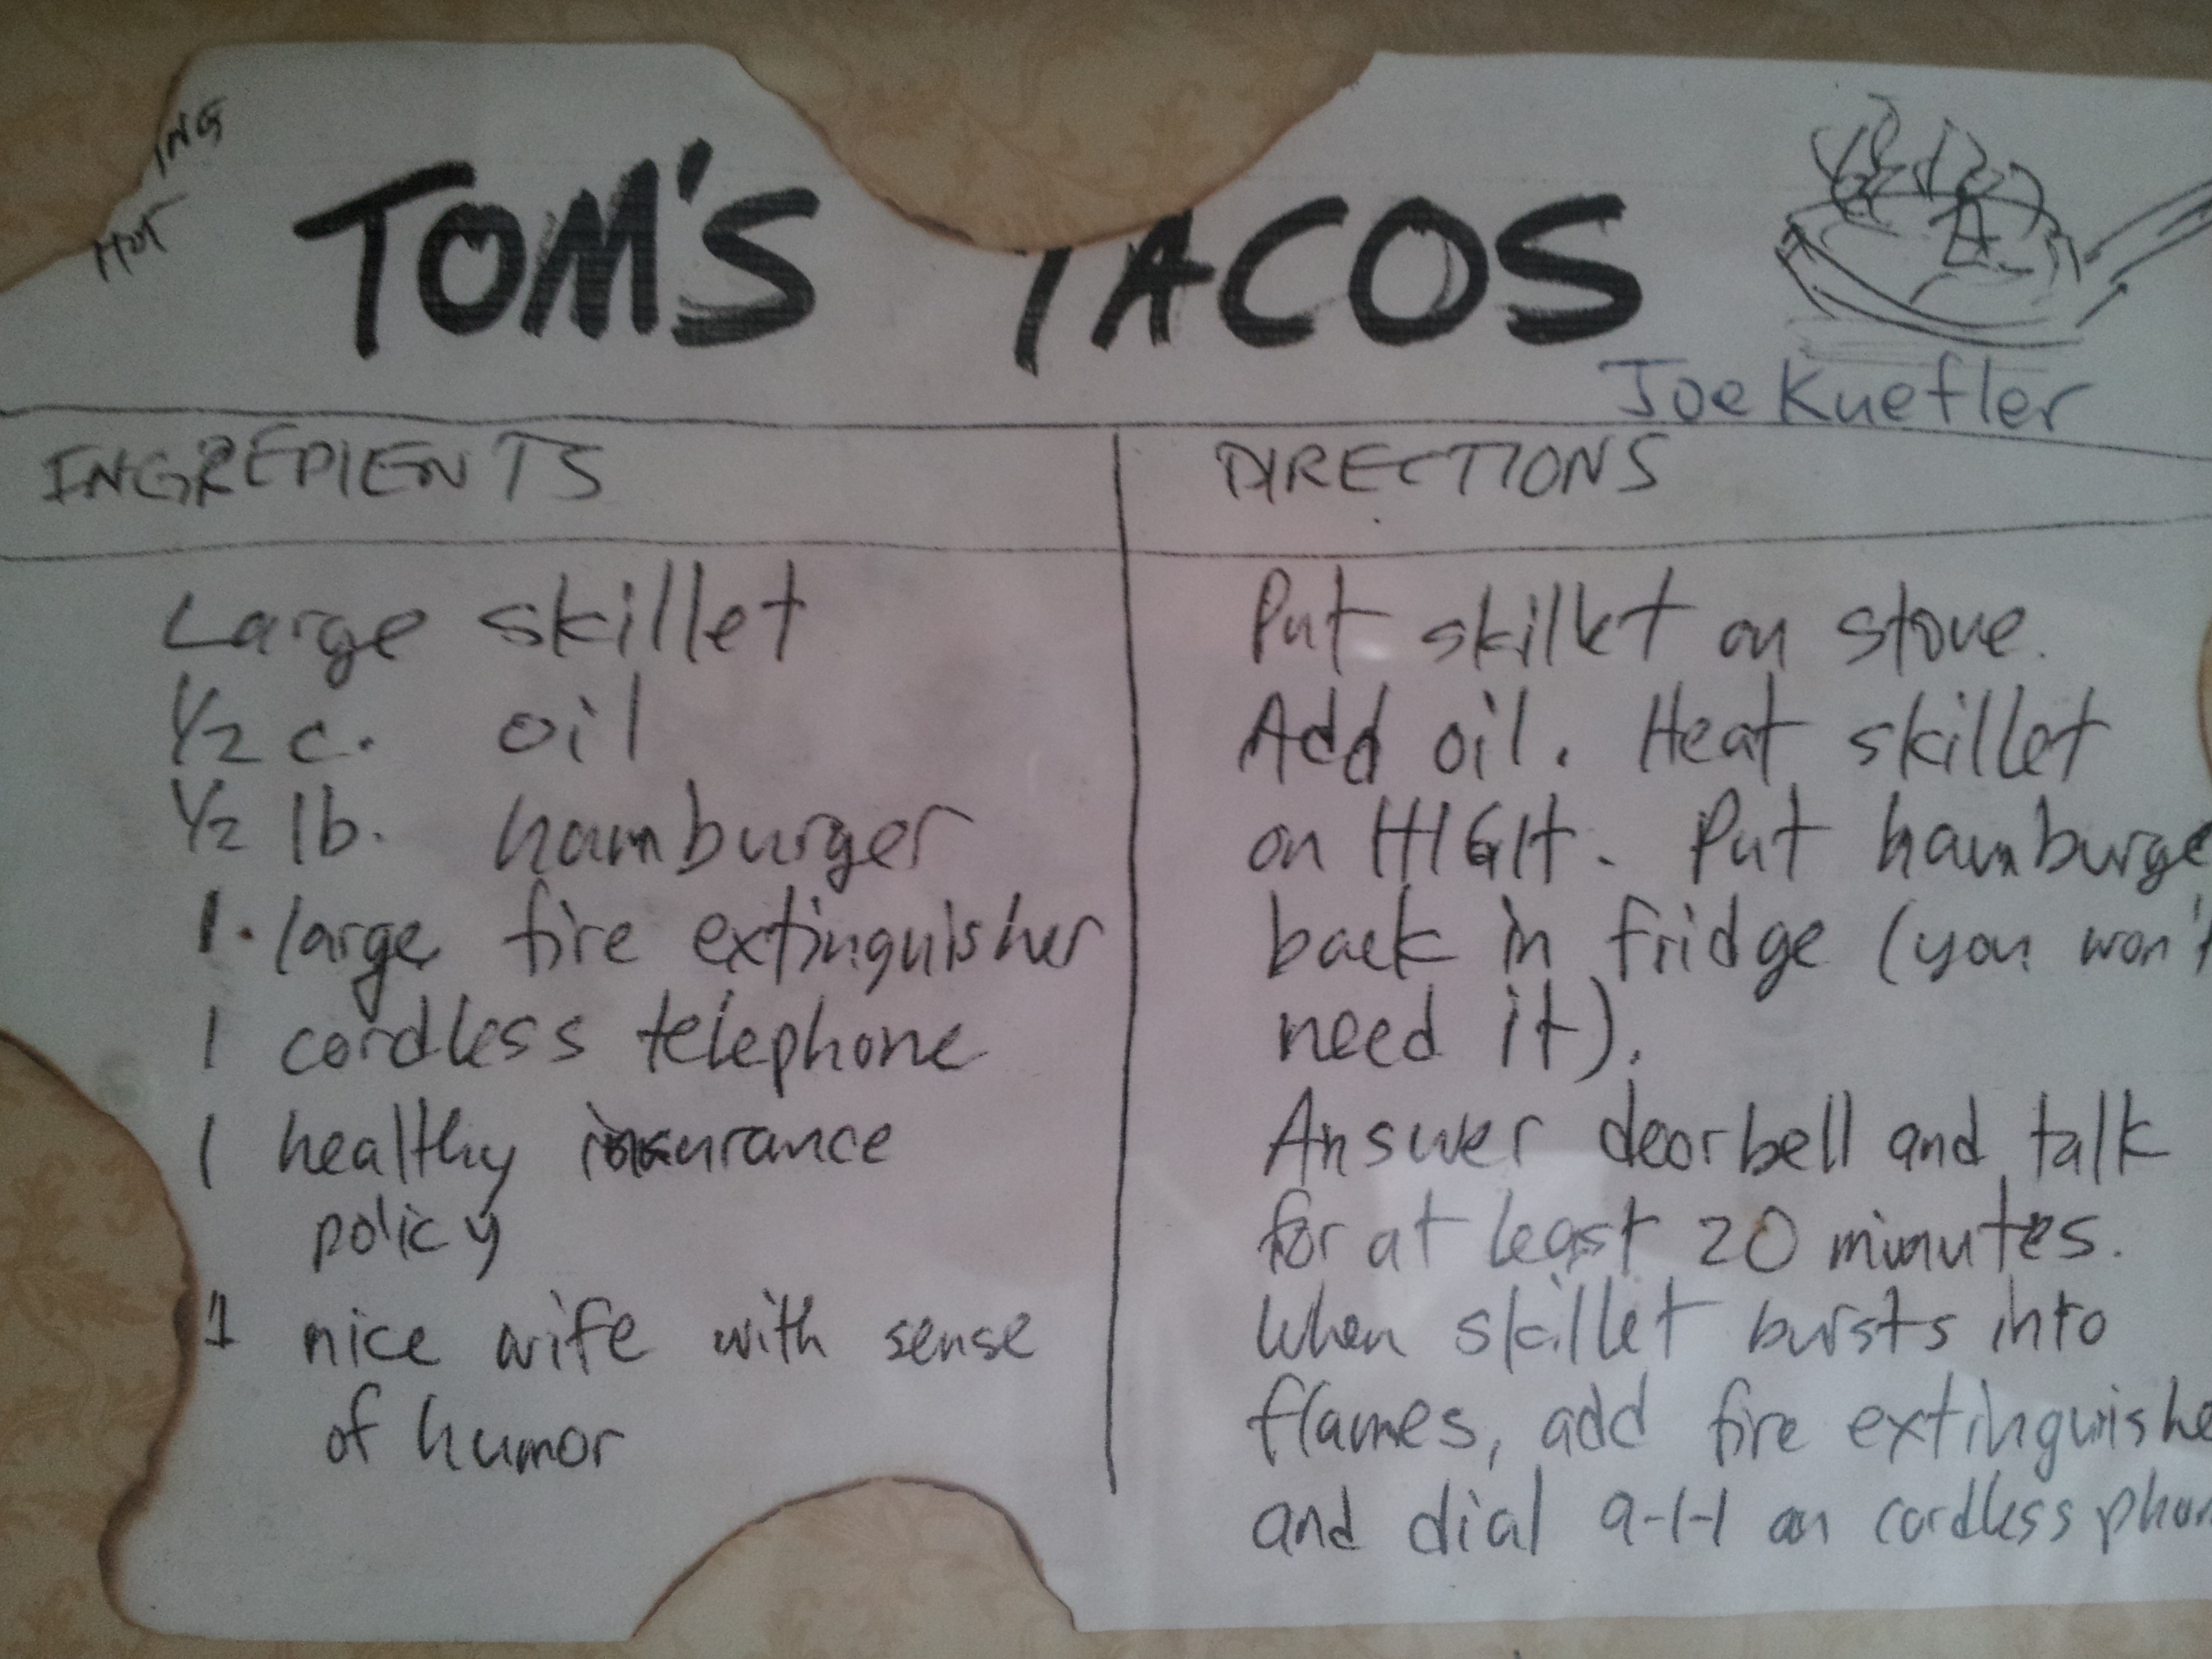 ING
HOT
TOM'S TACOS
Joe Kuefler
INGREDIENTS
Large skillet
1/2 c. oil
1/2 lb. hamburger
1. large fire extinguisher
1 cordless telephone
1 healthy insurance
policy
1 nice wife with sense
of humor
DIRECTIONS
Put skillet on stove.
Add oil. Heat skillet
on HIGH. Put hamburge
back in fridge (you won't
need it).
Answer doorbell and talk
for at least 20 minutes.
When skillet bursts into
flames, add fire extinguishe
and dial 9-1-1 on cordless phon